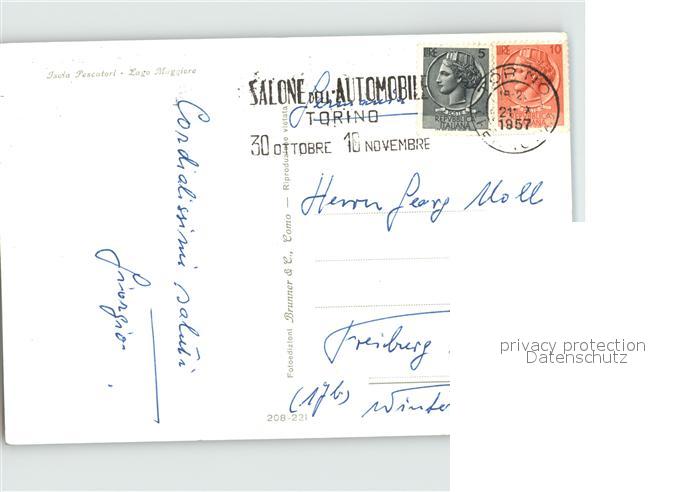 Isola Pescatori - Lago Maggiore
Cordialissimi saluti
Giorgio.
SALONE DELL'AUTOMOBILE
TORINO
30 OTTOBRE 10 NOVEMBRE
Germania
LIRE 5
REPVBBLICA
ITALIANA
LIRE 10
TORINO
1957
Herrn Georg Moll
Freiburg
(17b) Winter
Fotoedizioni Brunner & C., Como — Riproduzione vietata
208-221
privacy protection
Datenschutz